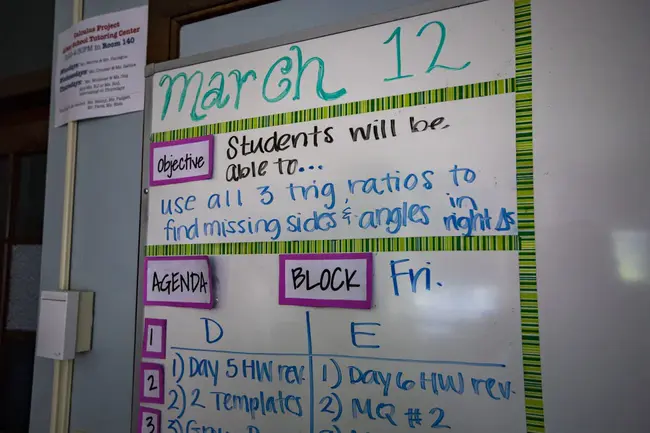 Calculus Project
After School Tutoring Center
in Room 140
March 12
Objective
Students will be
able to...
use all 3 trig ratios to
find missing sides & angles in
right Δs
AGENDA
BLOCK
Fri.
1
D
E
2
1) Day 5 HW rev.
1) Day 6 HW rev.
2) 2 Templates
2) MQ #2
3